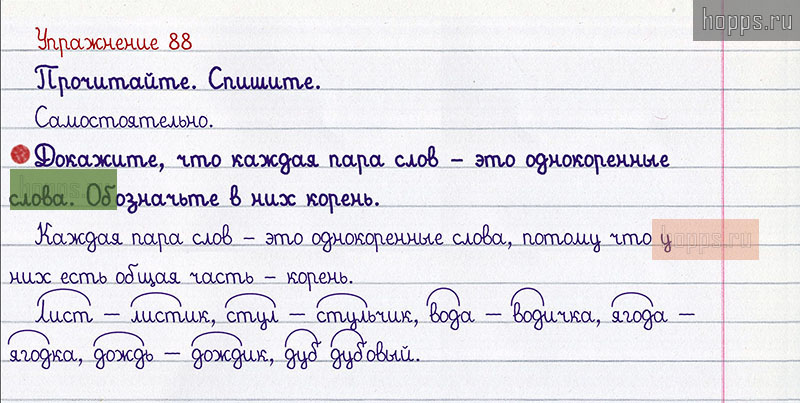 hopps.ru
Упражнение 88
Прочитайте. Спишите.
Самостоятельно.
Докажите, что каждая пара слов – это однокоренные
слова. Обозначьте в них корень.
Каждая пара слов – это однокоренные слова, потому что у
hopps.ru
них есть общая часть – корень.
Лист – листик, стул – стульчик, вода – водичка, ягода –
ягодка, дождь – дождик, дуб дубовый.